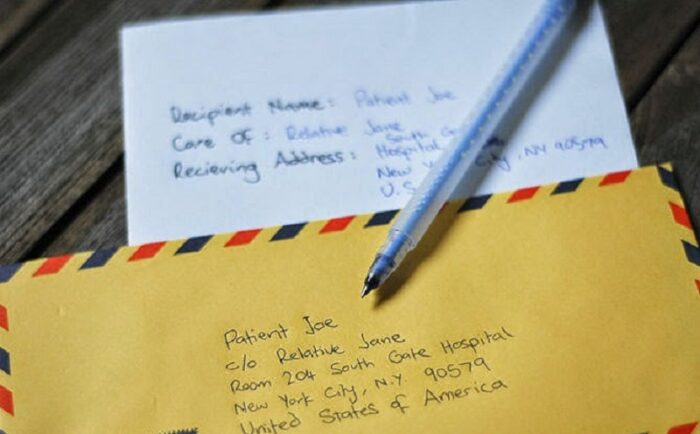 Recipient Name: Patient Joe
Care Of: Relative Jane
South Gate
Recieving Address: Hospital
New City, NY 90579
U.S
Patient Joe
c/o Relative Jane
Room 204 South Gate Hospital
New York City, N.Y. 90579
United States of America